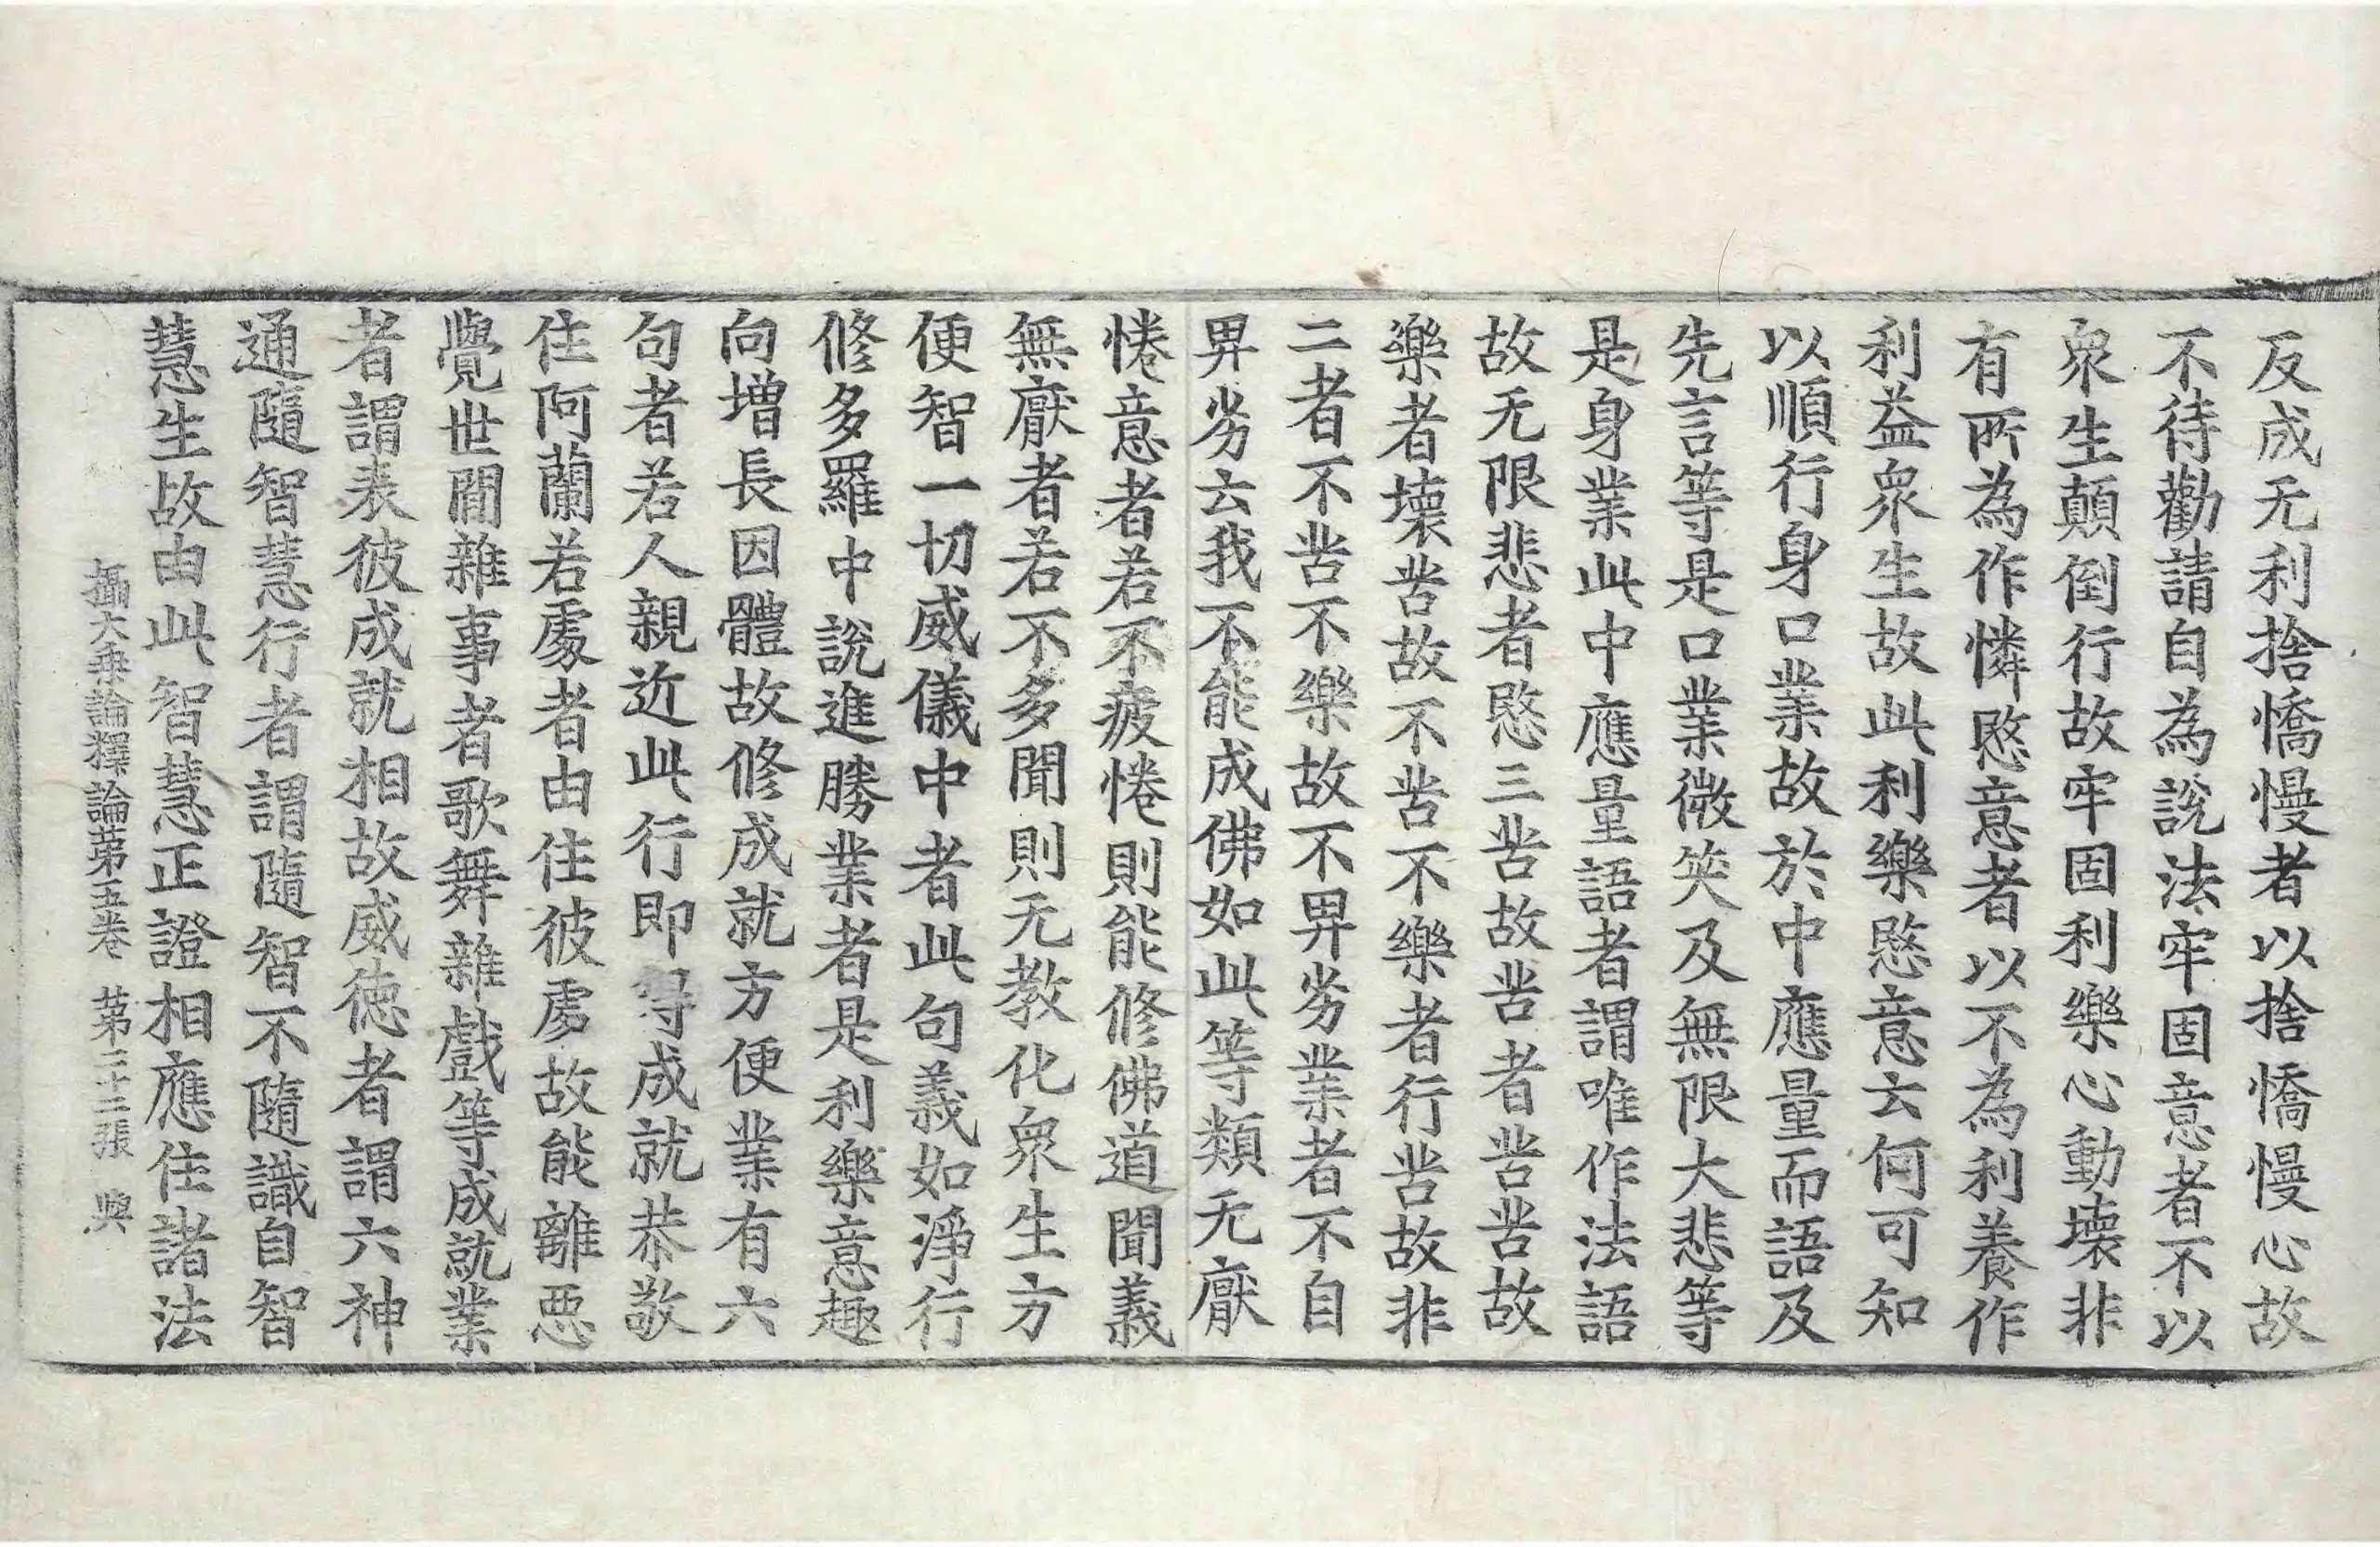 反成无利捨憍慢者以捨憍慢心故
不待勸請自為說法牢固意者不以
衆生顛倒行故牢固利樂心動壞非
有所為作憐愍意者以不為利養作
利益衆生故此利樂愍意云何可知
以順行身口業故於中應量而語及
先言等是口業微笑及無限大悲等
是身業此中應量語者謂唯作法語
故无限悲者愍三苦故苦者苦苦故
樂者壞苦故不苦不樂者行苦故非
二者不苦不樂故不畀劣業者不自
畀劣云我不能成佛如此等類无厭
惓意者若不疲惓則能修佛道聞義
無厭者若不多聞則无教化衆生方
便智一切威儀中者此句義如淨行
修多羅中說進勝業者是利樂意趣
向增長因體故修成就方便業有六
句者若人親近此行即得成就恭敬
住阿蘭若處者由住彼處故能離惡
覺世間雜事者歌舞雜戲等成就業
者謂表彼成就相故威德者謂六神
通隨智慧行者謂隨智不隨識自智
慧生故由此智慧正證相應住諸法
攝大乘論釋論第五卷　第二十二張　興